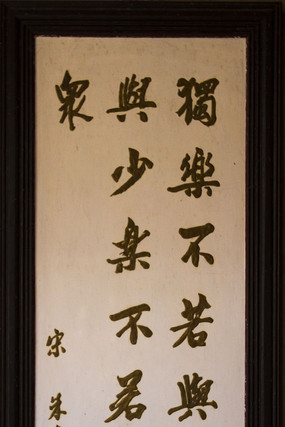 獨樂不若與
與少樂不若
衆
宋 朱